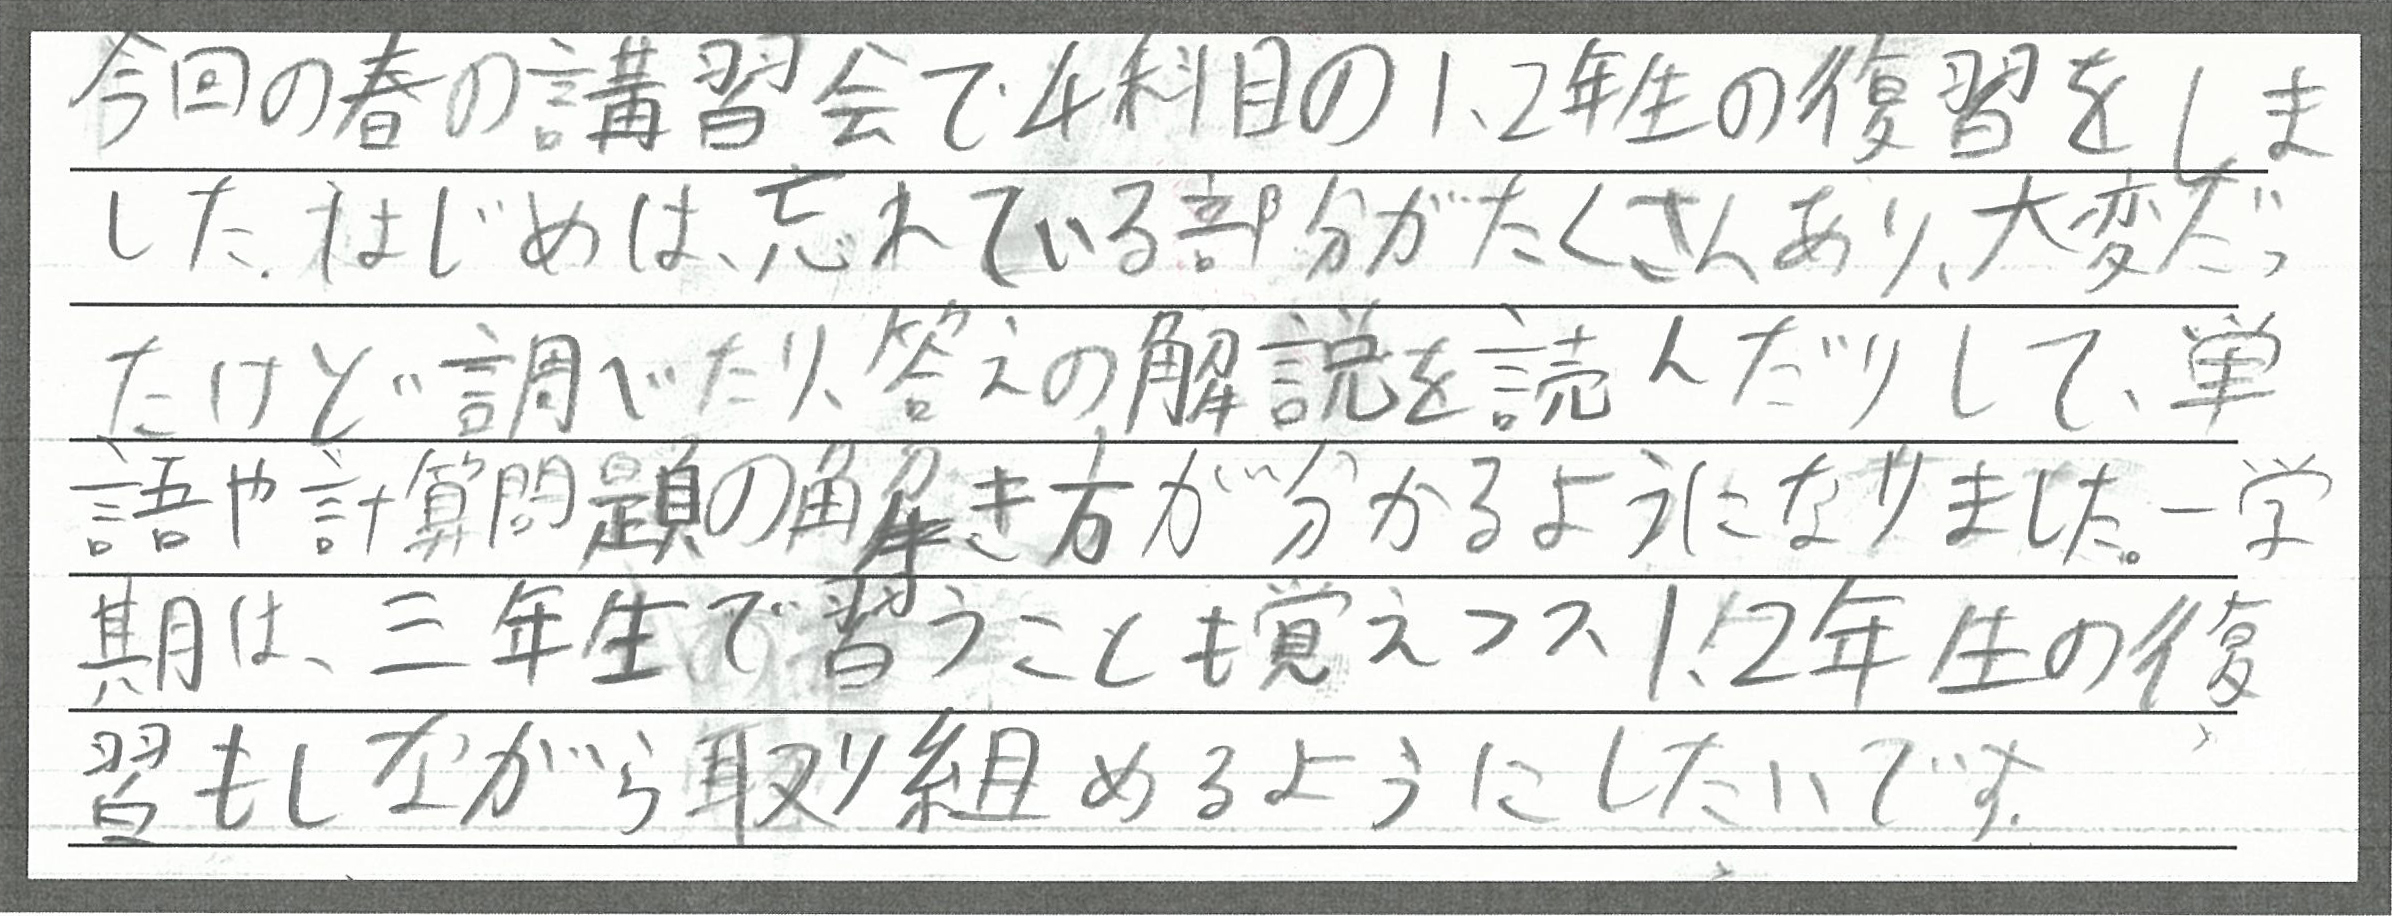 今回の春の講習会で4科目の1、2年生の復習をしま
した。はじめは、忘れている部分がたくさんあり、大変だっ
たけど調べたり、答えの解説を読んだりして、単
語や計算問題の解き方が分かるようになりました。一学
期は、三年生で習うことも覚えつつ、1、2年生の復
習もしながら取り組めるようにしたいです。